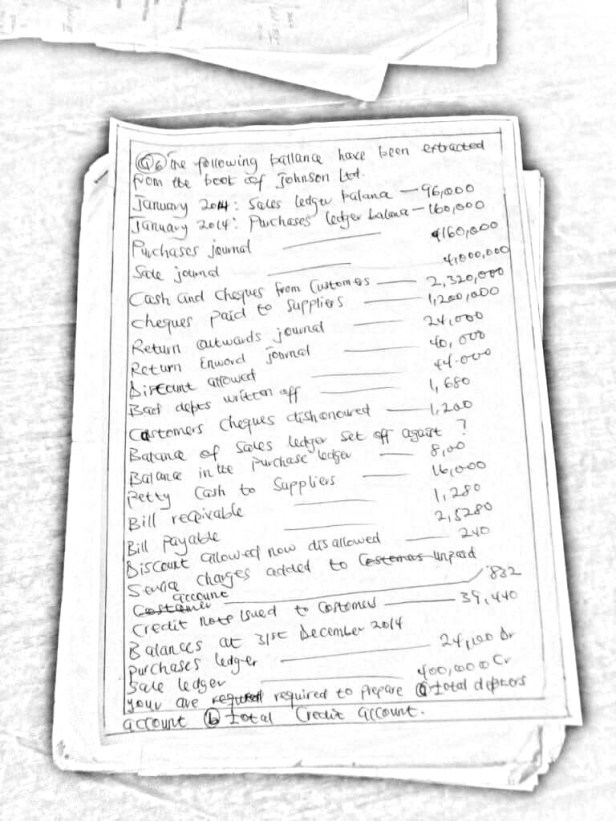 Q6 The following ballance have been extracted
from the book of Johnson Ltd.
January 2014: Sales ledger balance — 96,000
January 2014: Purchases ledger balance — 160,000
Purchases journal — 4160,000
Sale journal — 41000,000
Cash and cheques from Customers — 2,320,000
Cheques paid to Suppliers — 1,200,000
Return outwards journal — 24,000
Return Enword journal — 40,000
Discount allowed — 44.000
Bad depts written off — 1,680
Castomers cheques dishonoured — 1,200
Balance of Sales ledger set off against ?
Balance in the purchase ledger — 8,00
Petty Cash to Suppliers — 16,000
Bill receivable — 1,280
Bill payable — 2,5280
Discount allowed now disallowed — 240
Service charges added to Costomers unpaid
Costamer account — '832
Credit note issued to Costomer — 39,440
Balances at 31st December 2014
Purchases ledger — 24,100 Dr
Sale ledger — 400,000 Cr
your are required required to prepare (a) total depters
account (b) total Credit account.